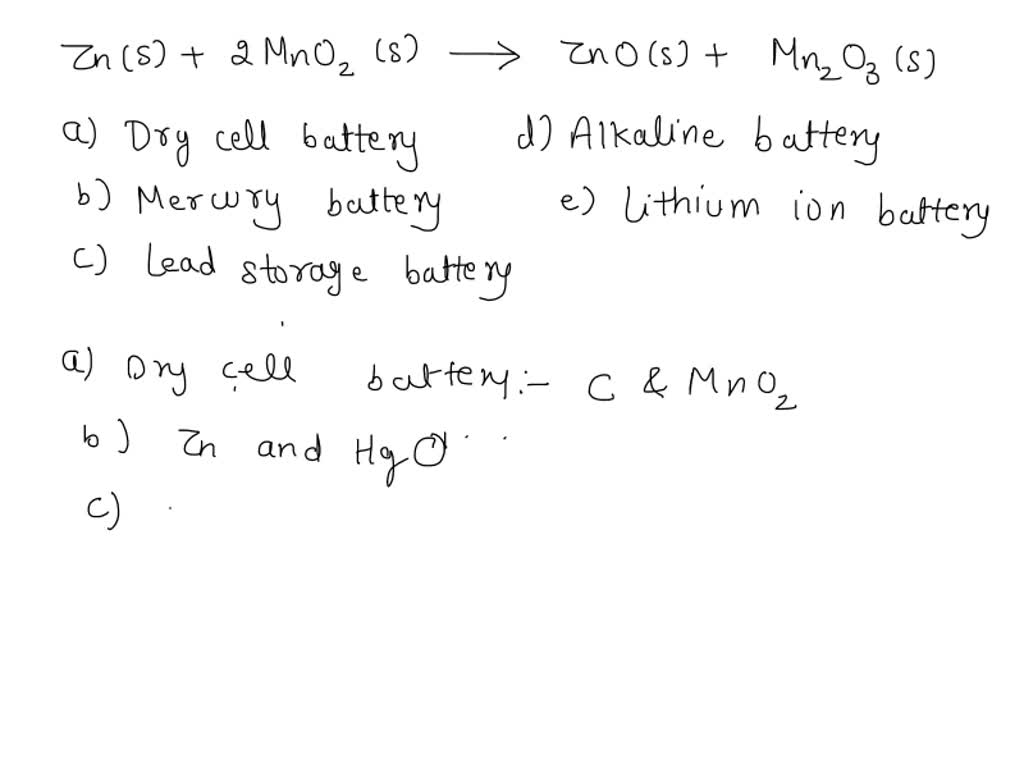 Zn(s) + 2MnO₂ (s) ⟶ ZnO(s) + Mn₂O₃ (s)
a) Dry cell battery d) Alkaline battery
b) Mercury battery e) Lithium ion battery
c) Lead storage battery
a) Dry cell battery:- C & MnO₂
b) Zn and HgO
c)